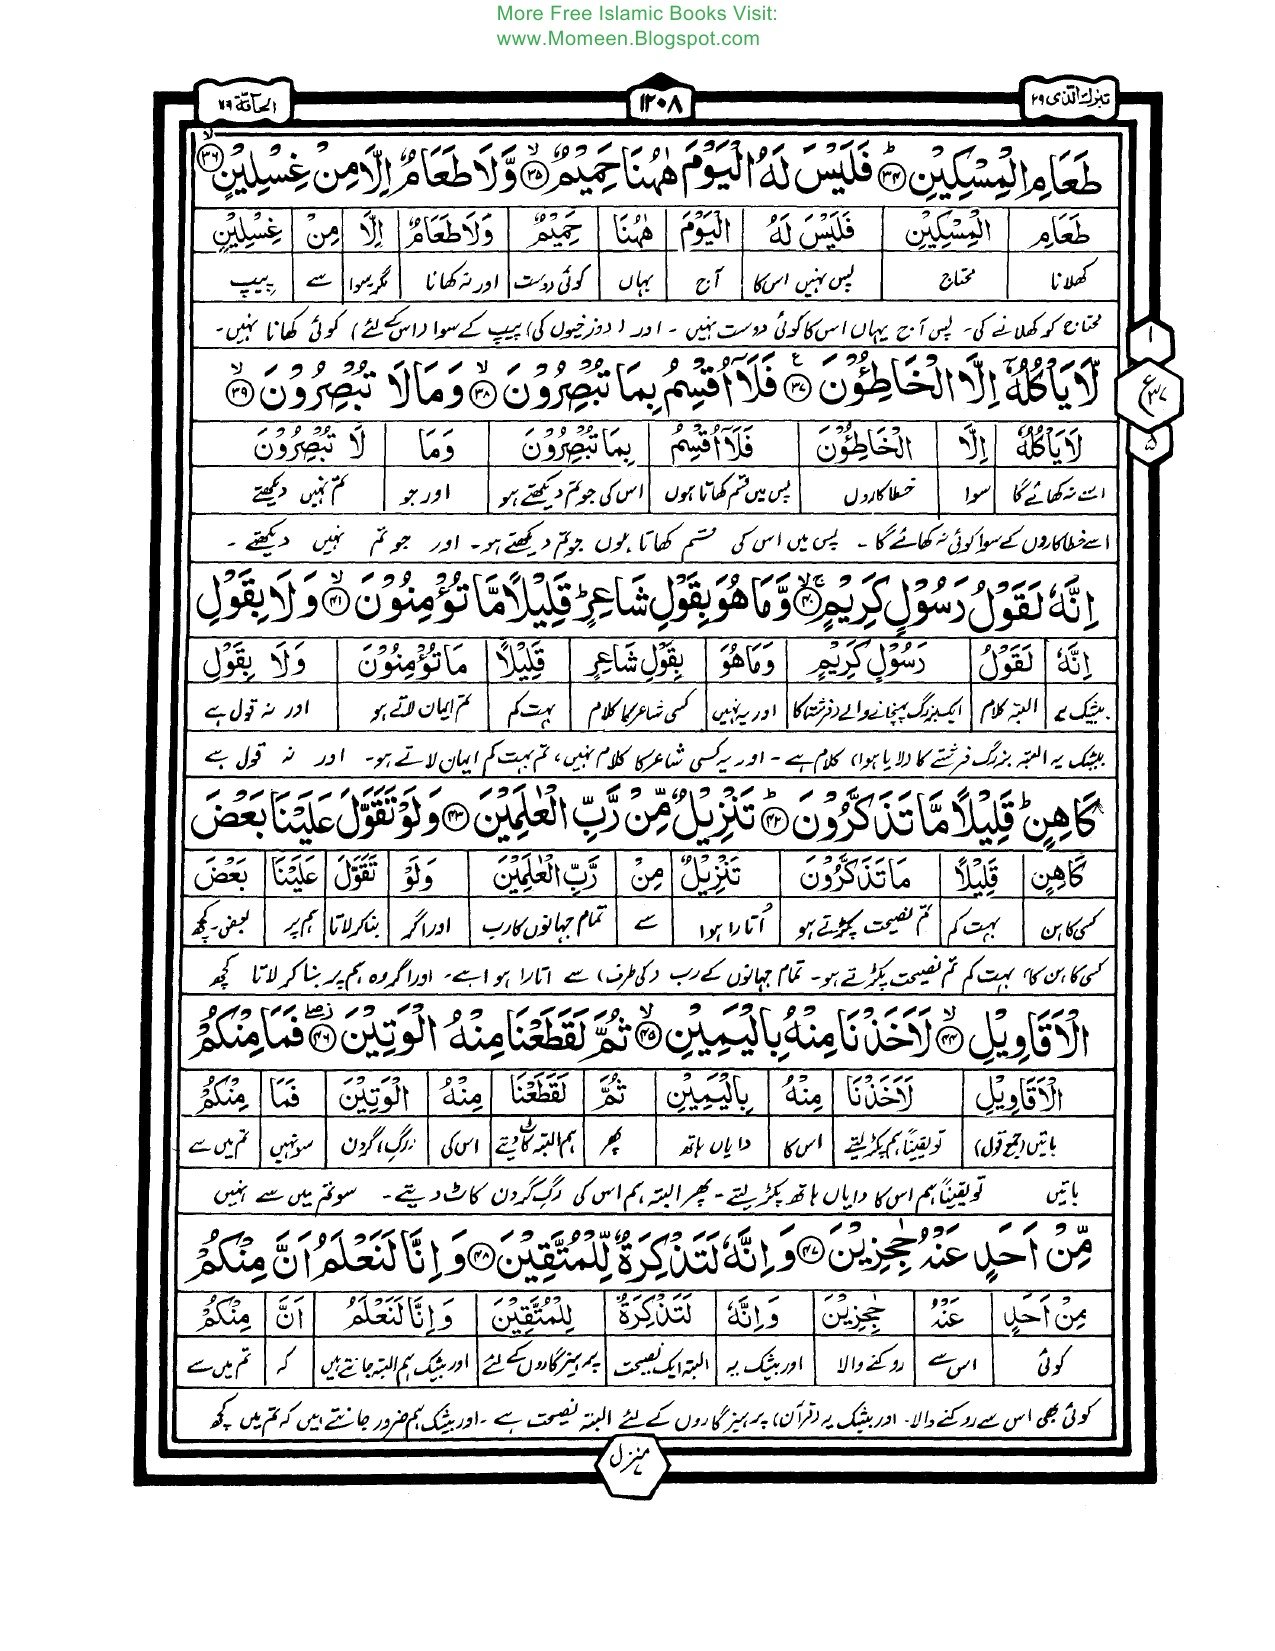 More Free Islamic Books Visit:
www.Momeen.Blogspot.com
تبٰرك الذى ۲۹ ۱۲۰۸ الحآقة ۶۹
طَعَامِ الْمِسْكِيْنِ ؕ۳۴ فَلَيْسَ لَهُ الْيَوْمَ هٰهُنَا حَمِيْمٌ ۙ۳۵ وَّلَا طَعَامٌ اِلَّا مِنْ غِسْلِيْنٍ ۙ۳۶
طَعَامِ الْمِسْكِيْنِ فَلَيْسَ لَهُ الْيَوْمَ هٰهُنَا حَمِيْمٌ وَلَا طَعَامٌ اِلَّا مِنْ غِسْلِيْنٍ
کھلانا محتاج پس نہیں اس کا آج یہاں کوئی دوست اور نہ کھانا مگر سوا سے پیپ
محتاج کو کھلانے کی۔ پس آج یہاں اس کا کوئی دوست نہیں۔ اور (دوزخیوں کی) پیپ کے سوا (اس کے لئے) کوئی کھانا نہیں۔
۱
لَّا يَاْكُلُهٗۤ اِلَّا الْخَاطِئُوْنَ ۳۷ع فَلَاۤ اُقْسِمُ بِمَا تُبْصِرُوْنَ ۙ۳۸ وَمَا لَا تُبْصِرُوْنَ ۙ۳۹
ع ۳۷
لَا يَاْكُلُهٗۤ اِلَّا الْخَاطِئُوْنَ فَلَاۤ اُقْسِمُ بِمَا تُبْصِرُوْنَ وَمَا لَا تُبْصِرُوْنَ
۵
اسے نہ کھائے گا سوا خطاکاروں پس میں قسم کھاتا ہوں اس کی جو تم دیکھتے ہو اور جو تم نہیں دیکھتے
اسے خطاکاروں کے سوا کوئی نہ کھائے گا۔ پس میں اس کی قسم کھاتا ہوں جو تم دیکھتے ہو۔ اور جو تم نہیں دیکھتے۔
اِنَّهٗ لَقَوْلُ رَسُوْلٍ كَرِيْمٍ ۙ۴۰ وَّمَا هُوَ بِقَوْلِ شَاعِرٍ ؕ قَلِيْلًا مَّا تُؤْمِنُوْنَ ۙ۴۱ وَلَا بِقَوْلِ
اِنَّهٗ لَقَوْلُ رَسُوْلٍ كَرِيْمٍ وَمَا هُوَ بِقَوْلِ شَاعِرٍ قَلِيْلًا مَا تُؤْمِنُوْنَ وَلَا بِقَوْلِ
بیشک یہ البتہ کلام ایک بزرگ پہنچانے والے (فرشتہ) کا اور یہ نہیں کسی شاعر کا کلام بہت کم تم ایمان لاتے ہو اور نہ قول ہے
بیشک یہ البتہ بزرگ فرشتے کا (لایا ہوا) کلام ہے۔ اور یہ کسی شاعر کا کلام نہیں، تم بہت کم ایمان لاتے ہو۔ اور نہ قول ہے
كَاهِنٍ ؕ قَلِيْلًا مَّا تَذَكَّرُوْنَ ؕ۴۲ تَنْزِيْلٌ مِّنْ رَّبِّ الْعٰلَمِيْنَ ۴۳ وَلَوْ تَقَوَّلَ عَلَيْنَا بَعْضَ
كَاهِنٍ قَلِيْلًا مَا تَذَكَّرُوْنَ تَنْزِيْلٌ مِنْ رَّبِّ الْعٰلَمِيْنَ وَلَوْ تَقَوَّلَ عَلَيْنَا بَعْضَ
کسی کاہن بہت کم تم نصیحت پکڑتے ہو اُتارا ہوا سے تمام جہانوں کا رب اور اگر بنا کر لاتا ہم پر بعض۔کچھ
کسی کاہن کا بہت کم تم نصیحت پکڑتے ہو۔ تمام جہانوں کے رب (کی طرف) سے اتارا ہوا ہے۔ اور اگر وہ ہم پر بنا کر لاتا کچھ
الْاَقَاوِيْلِ ۙ۴۴ لَاَخَذْنَا مِنْهُ بِالْيَمِيْنِ ۙ۴۵ ثُمَّ لَقَطَعْنَا مِنْهُ الْوَتِيْنَ ۴۶ فَمَا مِنْكُمْ
الْاَقَاوِيْلِ لَاَخَذْنَا مِنْهُ بِالْيَمِيْنِ ثُمَّ لَقَطَعْنَا مِنْهُ الْوَتِيْنَ فَمَا مِنْكُمْ
باتیں (جمع قول) تو یقیناً ہم پکڑ لیتے اس کا دایاں ہاتھ پھر ہم البتہ کاٹ دیتے اس کی رگِ گردن سو نہیں تم میں سے
باتیں تو یقیناً ہم اس کا دایاں ہاتھ پکڑ لیتے۔ پھر البتہ ہم اس کی رگِ گردن کاٹ دیتے۔ سو تم میں سے نہیں
مِّنْ اَحَدٍ عَنْهُ حٰجِزِيْنَ ۴۷ وَاِنَّهٗ لَتَذْكِرَةٌ لِّلْمُتَّقِيْنَ ۴۸ وَاِنَّا لَنَعْلَمُ اَنَّ مِنْكُمْ
مِنْ اَحَدٍ عَنْهُ حٰجِزِيْنَ وَاِنَّهٗ لَتَذْكِرَةٌ لِلْمُتَّقِيْنَ وَاِنَّا لَنَعْلَمُ اَنَّ مِنْكُمْ
کوئی اس سے روکنے والا اور بیشک یہ البتہ ایک نصیحت پرہیزگاروں کے لئے اور بیشک ہم البتہ جانتے ہیں کہ تم میں سے
کوئی بھی اس سے روکنے والا۔ اور بیشک یہ (قرآن) پرہیزگاروں کے لئے البتہ نصیحت ہے۔ اور بیشک ہم ضرور جانتے ہیں کہ تم میں کچھ
منزل ۷